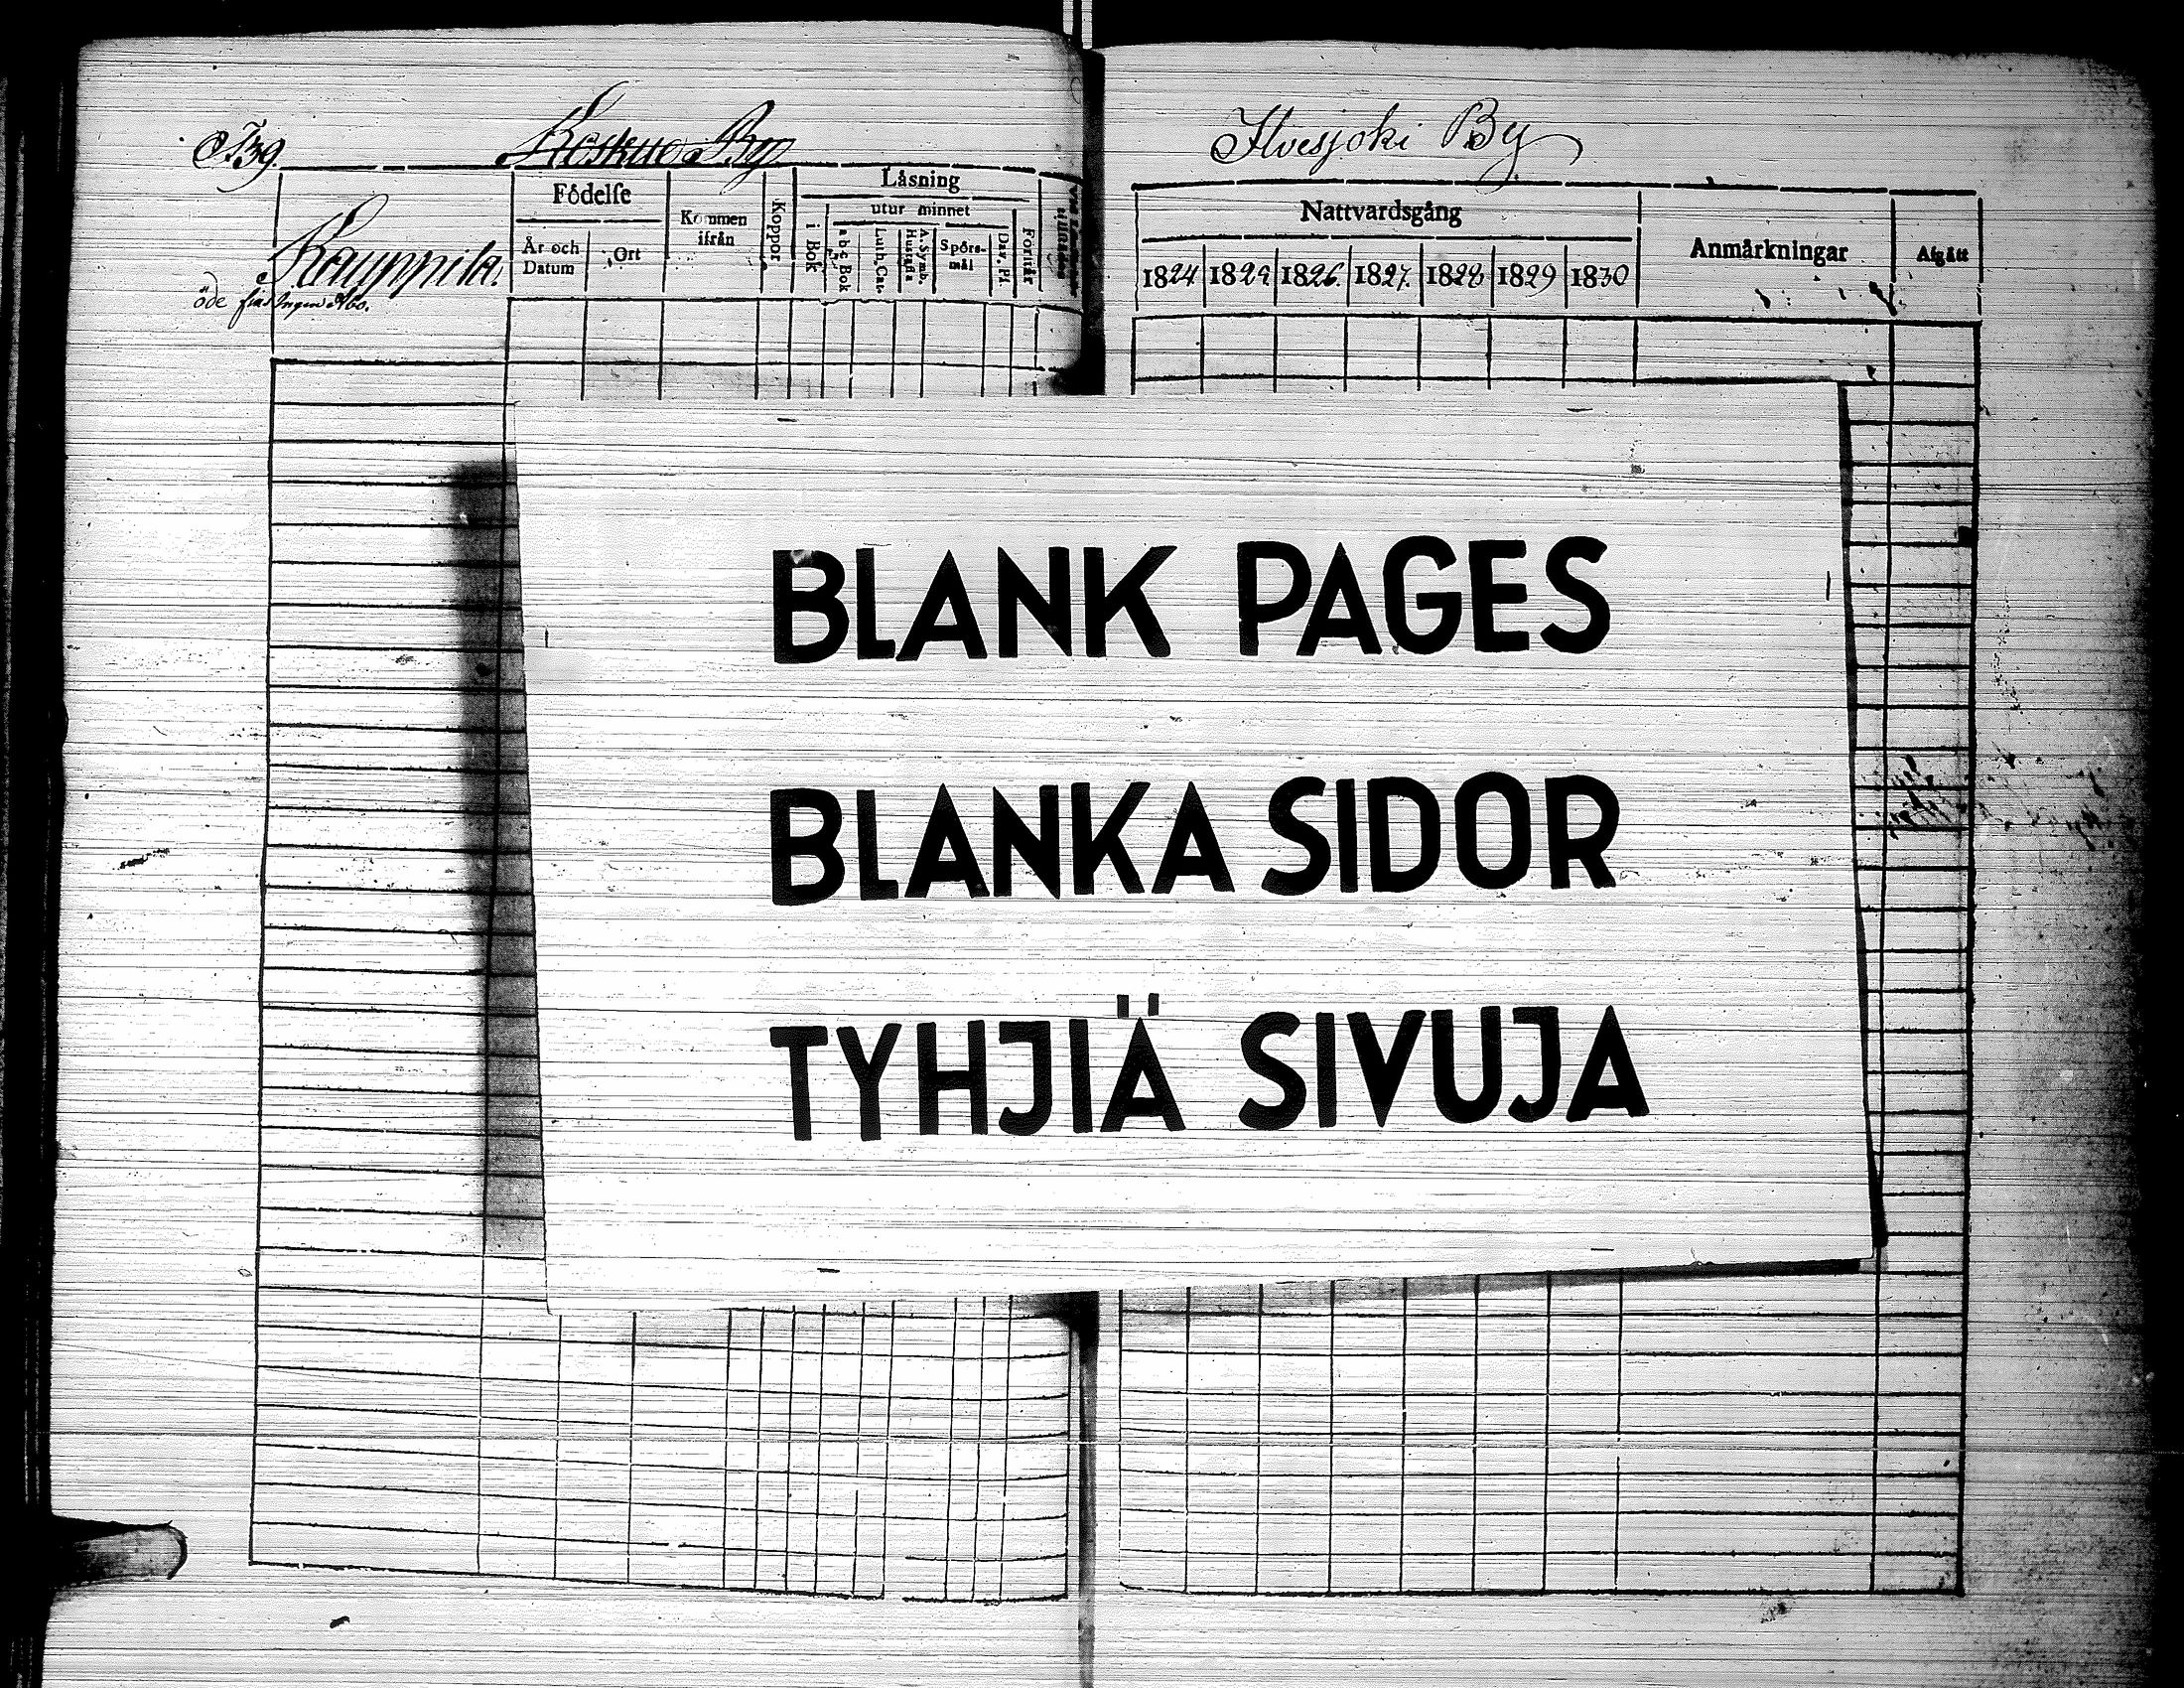 Koskuo By
Ilvesjoki By
Kauppila.
öde
Födelse
År och Datum
Ort
Kommen ifrån
Koppor
Läsning
i Bok
utur minnet
abc Bok
Luth. Cat.
A. Symb. Hustafla
Spörs-mål
Dav. Ps.
Förstår
Nattvardsgång
1824 1825 1826. 1827. 1828 1829 1830
Anmärkningar
Afgått
BLANK PAGES
BLANKA SIDOR
TYHJIÄ SIVUJA